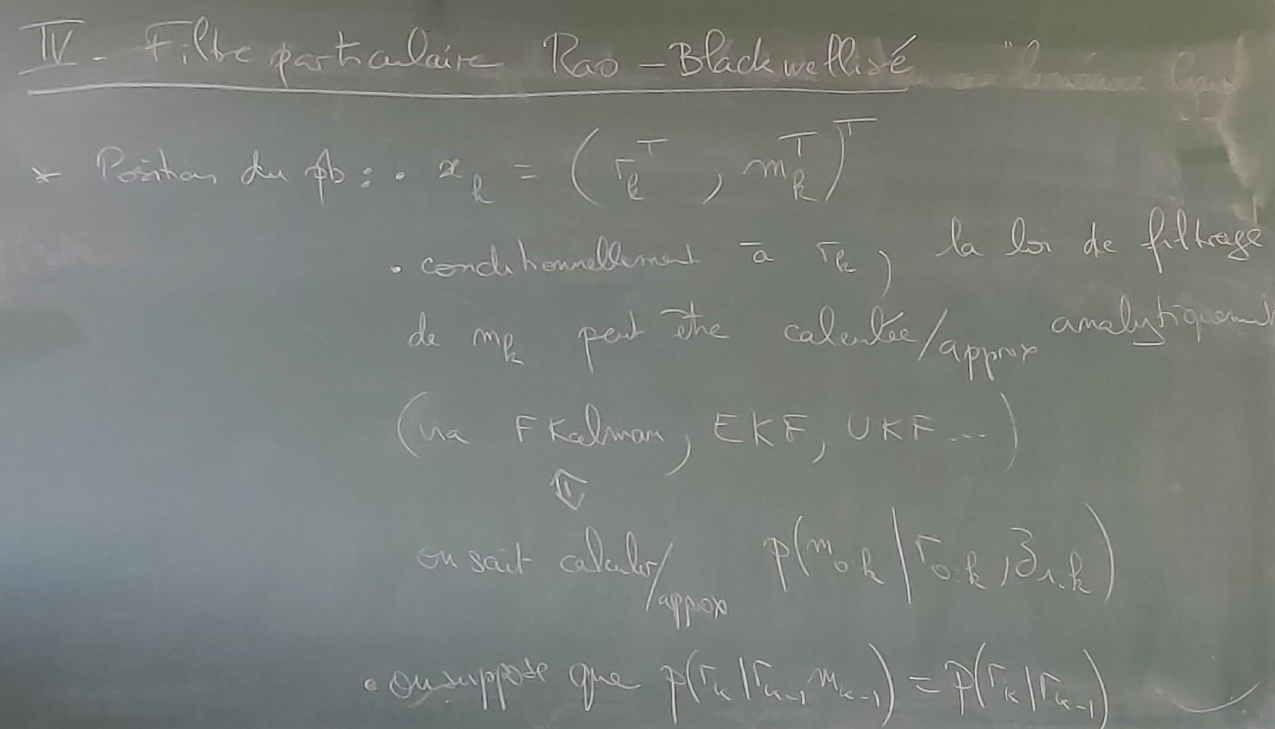 IV - Filtre particulaire Rao-Blackwellisé
* Position du pb : • x_k = (r_k^T, m_k^T)^T
• conditionnellement à r_k, la loi de filtrage
de m_k peut être calculée/approx analytiquement
(via FKalman, EKF, UKF...)
⇕
on sait calculer/approx p(m_{0:k} | r_{0:k}, z_{1:k})
• on suppose que p(r_k | r_{k-1}, m_{k-1}) = p(r_k | r_{k-1})